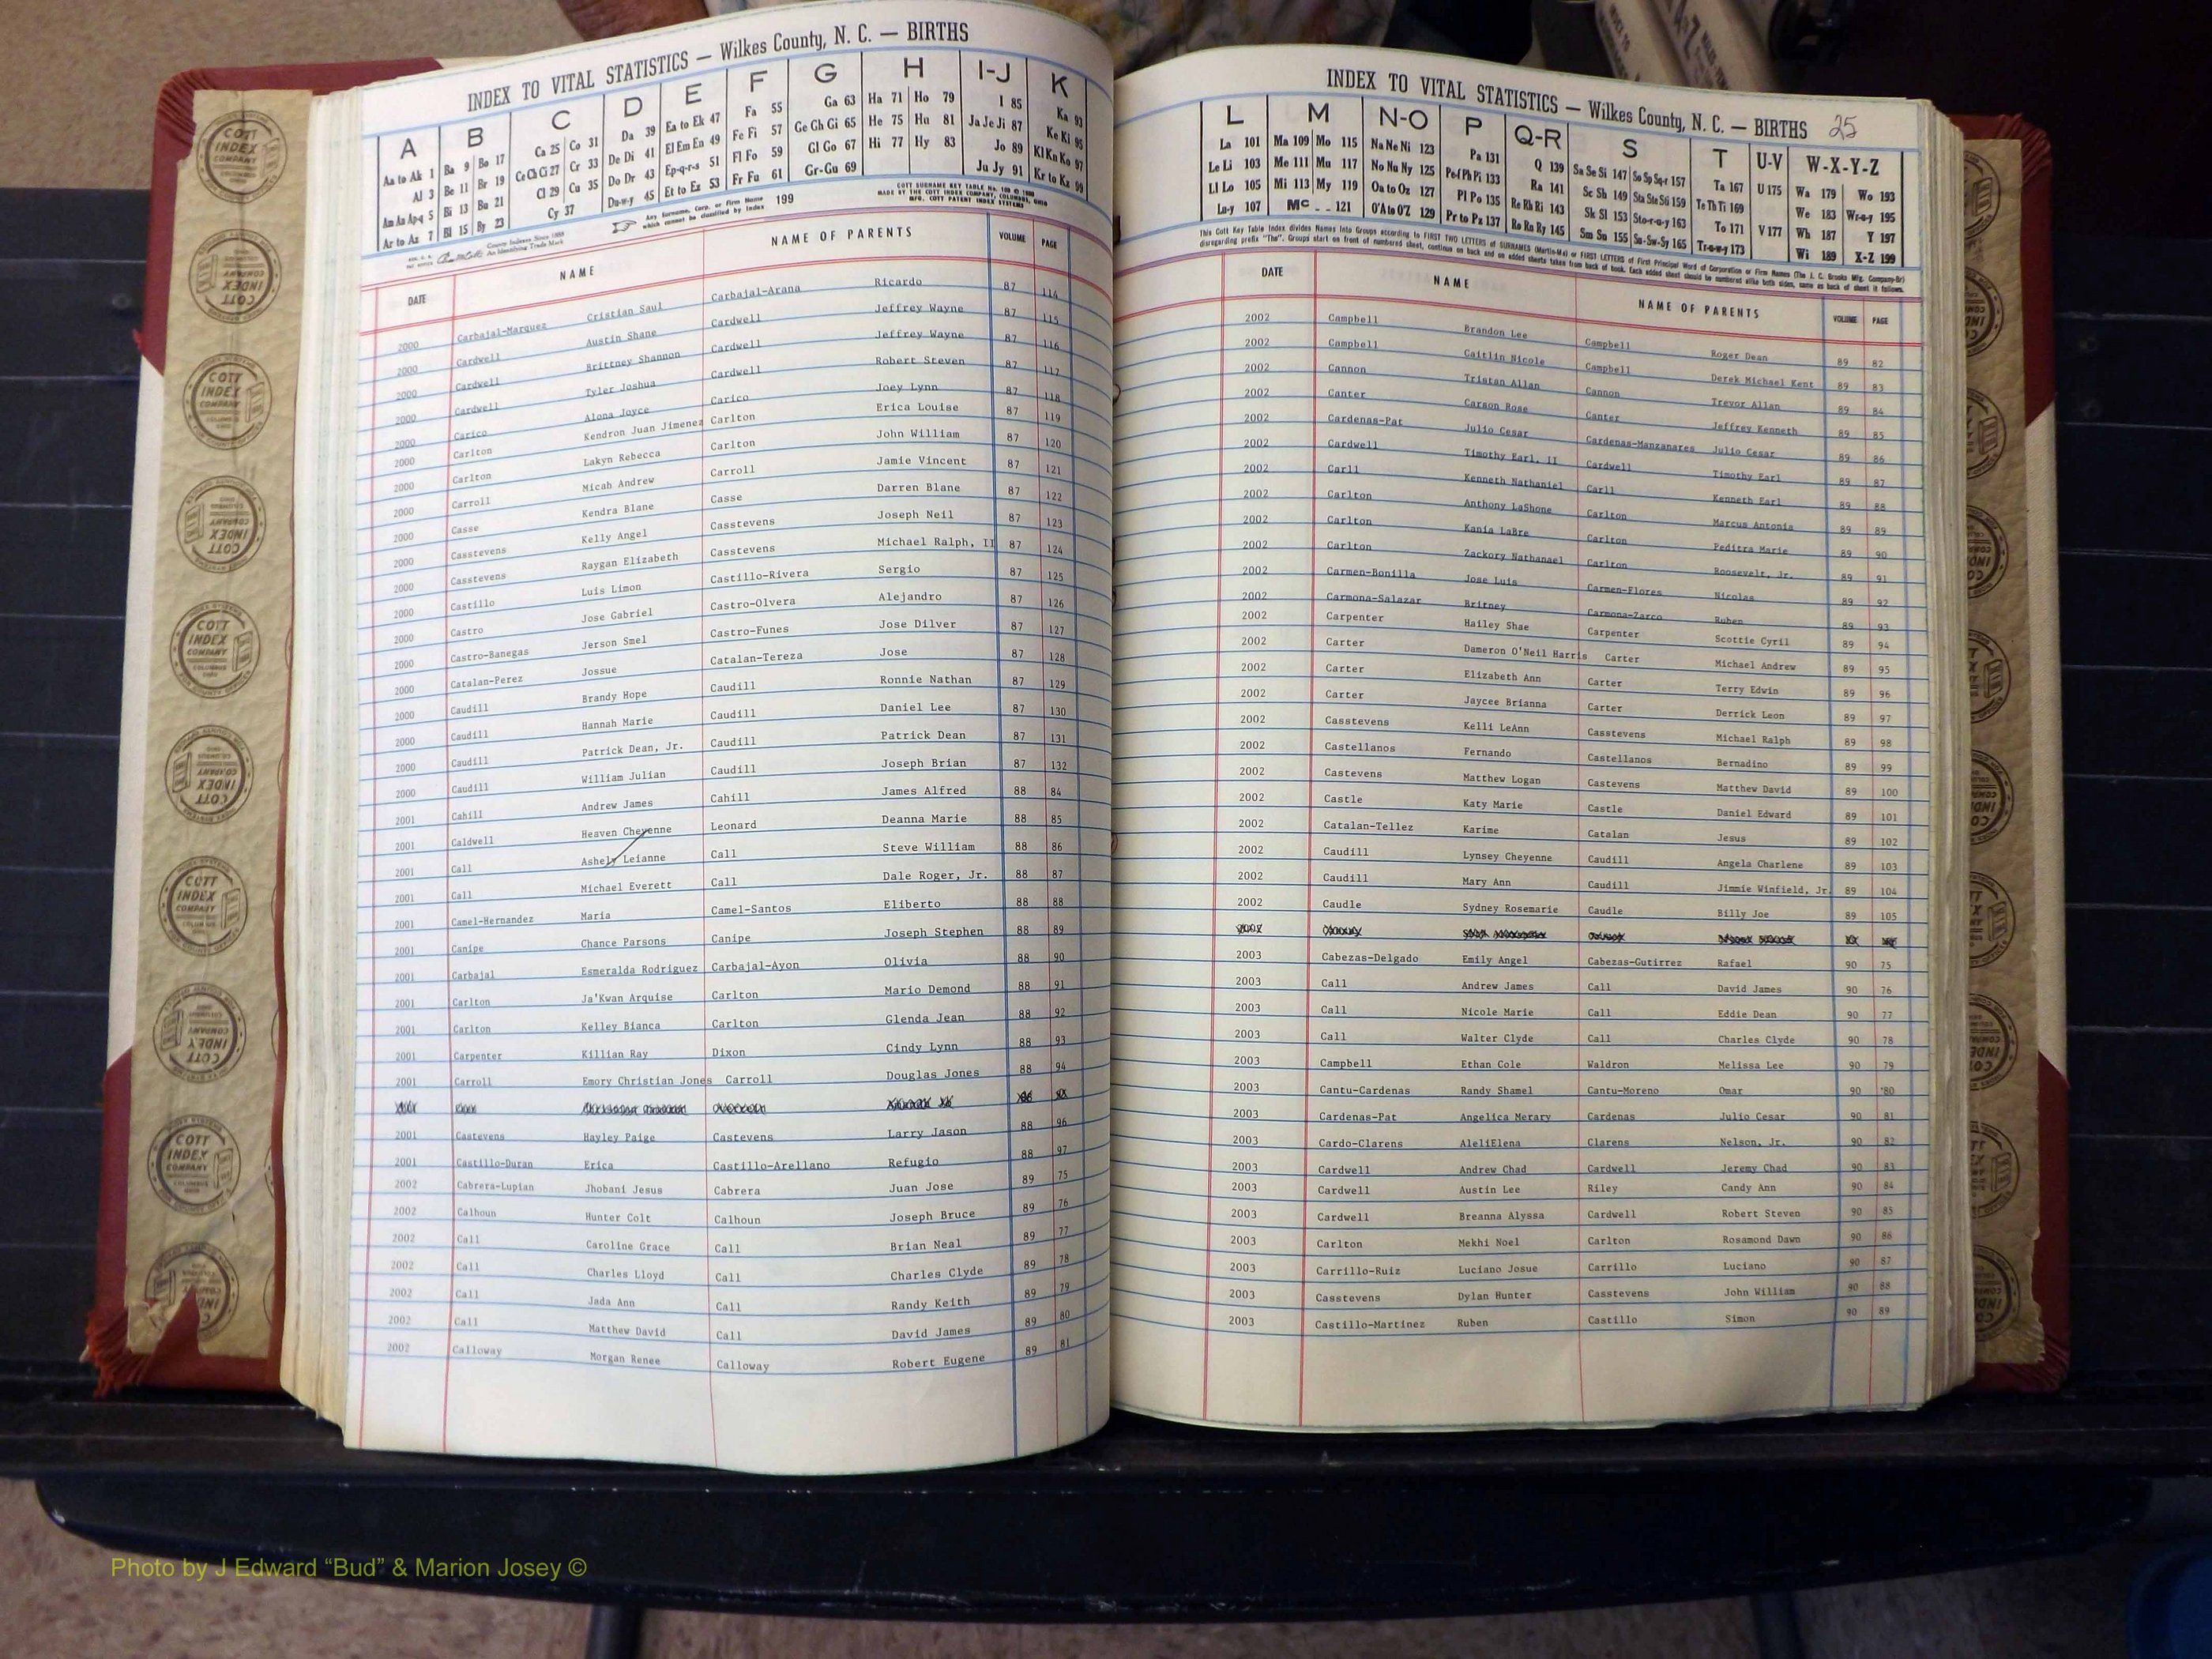 INDEX TO VITAL STATISTICS — Wilkes County, N. C. — BIRTHS
A B C D E F G H I-J K
Aa to Ak 1 Ba 9 Bo 17 Ca 25 Co 31 Da 39 Ea to Ek 47 Fa 55 Ga 63 Ha 71 Ho 79 I 85 Ka 93
Al 3 Be 11 Br 19 Ce Ch Ci 27 Cr 33 De Di 41 El Em En 49 Fe Fi 57 Ge Gh Gi 65 He 75 Hu 81 Ja Je Ji 87 Ke Ki 95
Am An Ap-q 5 Bi 13 Bu 21 Cl 29 Cu 35 Do Dr 43 Ep-q-r-s 51 Fl Fo 59 Gl Go 67 Hi 77 Hy 83 Jo 89 Kl Kn Ko 97
Ar to Az 7 Bl 15 By 23 Cy 37 Du-w-y 45 Et to Ez 53 Fr Fu 61 Gr-Gu 69 Ju Jy 91 Kr to Kz 99
Any Surname, Corp. or Firm Name which cannot be classified by Index 199
County Indexes Since 1888
An Identifying Trade Mark
COTT SURNAME KEY TABLE
MADE BY THE COTT INDEX COMPANY, COLUMBUS, OHIO
MFG. COTT PATENT INDEX SYSTEMS
DATE NAME NAME OF PARENTS VOLUME PAGE
2000 Carbajal-Marquez Cristian Saul Carbajal-Arana Ricardo 87 114
2000 Cardwell Austin Shane Cardwell Jeffrey Wayne 87 115
2000 Cardwell Brittney Shannon Cardwell Jeffrey Wayne 87 116
2000 Cardwell Tyler Joshua Cardwell Robert Steven 87 117
2000 Carico Alona Joyce Carico Joey Lynn 87 118
2000 Carlton Kendron Juan Jimenez Carlton Erica Louise 87 119
2000 Carlton Lakyn Rebecca Carlton John William 87 120
2000 Carroll Micah Andrew Carroll Jamie Vincent 87 121
2000 Casse Kendra Blane Casse Darren Blane 87 122
2000 Casstevens Kelly Angel Casstevens Joseph Neil 87 123
2000 Casstevens Raygan Elizabeth Casstevens Michael Ralph, II 87 124
2000 Castillo Luis Limon Castillo-Rivera Sergio 87 125
2000 Castro Jose Gabriel Castro-Olvera Alejandro 87 126
2000 Castro-Banegas Jerson Smel Castro-Funes Jose Dilver 87 127
2000 Catalan-Perez Jossue Catalan-Tereza Jose 87 128
2000 Caudill Brandy Hope Caudill Ronnie Nathan 87 129
2000 Caudill Hannah Marie Caudill Daniel Lee 87 130
2000 Caudill Patrick Dean, Jr. Caudill Patrick Dean 87 131
2000 Caudill William Julian Caudill Joseph Brian 87 132
2001 Cahill Andrew James Cahill James Alfred 88 84
2001 Caldwell Heaven Cheyenne Leonard Deanna Marie 88 85
2001 Call Ashely Leianne Call Steve William 88 86
2001 Call Michael Everett Call Dale Roger, Jr. 88 87
2001 Camel-Hernandez Maria Camel-Santos Eliberto 88 88
2001 Canipe Chance Parsons Canipe Joseph Stephen 88 89
2001 Carbajal Esmeralda Rodriguez Carbajal-Ayon Olivia 88 90
2001 Carlton Ja'Kwan Arquise Carlton Mario Demond 88 91
2001 Carlton Kelley Bianca Carlton Glenda Jean 88 92
2001 Carpenter Killian Ray Dixon Cindy Lynn 88 93
2001 Carroll Emory Christian Jones Carroll Douglas Jones 88 94
2001 Castevens Hayley Paige Castevens Larry Jason 88 96
2001 Castillo-Duran Erica Castillo-Arellano Refugio 88 97
2002 Cabrera-Lupian Jhobani Jesus Cabrera Juan Jose 89 75
2002 Calhoun Hunter Colt Calhoun Joseph Bruce 89 76
2002 Call Caroline Grace Call Brian Neal 89 77
2002 Call Charles Lloyd Call Charles Clyde 89 78
2002 Call Jada Ann Call Randy Keith 89 79
2002 Call Matthew David Call David James 89 80
2002 Calloway Morgan Renee Calloway Robert Eugene 89 81
INDEX TO VITAL STATISTICS — Wilkes County, N. C. — BIRTHS 25
L M N-O P Q-R S T U-V W-X-Y-Z
La 101 Ma 109 Mo 115 Na Ne Ni 123 Pa 131 Q 139 Sa Se Si 147 So Sp Sq-r 157 Ta 167 U 175 Wa 179 Wo 193
Le Li 103 Me 111 Mu 117 No Nu Ny 125 Pe-f Ph Pi 133 Ra 141 Sc Sh 149 Sta Ste Sti 159 Te Th Ti 169 We 183 Wr-u-y 195
Ll Lo 105 Mi 113 My 119 Oa to Oz 127 Pl Po 135 Re Rh Ri 143 Sk Sl 153 Sto-r-u-y 163 To 171 V 177 Wh 187 Y 197
Lu-y 107 Mc 121 O'A to O'Z 129 Pr to Pz 137 Ro Ru Ry 145 Sm Sn 155 Su-Sw-Sy 165 Tr-u-w-y 173 Wi 189 X-Z 199
This Cott Key Table Index divides Names into Groups according to FIRST TWO LETTERS of SURNAMES (Martin-Ma) or FIRST LETTERS of First Principal Word of Corporation or Firm Names (The J. C. Brooks Mfg. Company-Br)
disregarding prefix "The". Groups start on front of numbered sheet, continue on back and on added sheets taken from back of book. Each added sheet should be numbered alike both sides, same as back of sheet it follows.
DATE NAME NAME OF PARENTS VOLUME PAGE
2002 Campbell Brandon Lee Campbell Roger Dean 89 82
2002 Campbell Caitlin Nicole Campbell Derek Michael Kent 89 83
2002 Cannon Tristan Allan Cannon Trevor Allan 89 84
2002 Canter Carson Rose Canter Jeffrey Kenneth 89 85
2002 Cardenas-Pat Julio Cesar Cardenas-Manzanares Julio Cesar 89 86
2002 Cardwell Timothy Earl, II Cardwell Timothy Earl 89 87
2002 Carll Kenneth Nathaniel Carll Kenneth Earl 89 88
2002 Carlton Anthony LaShone Carlton Marcus Antonia 89 89
2002 Carlton Kania LaBre Carlton Peditra Marie 89 90
2002 Carlton Zackory Nathanael Carlton Roosevelt, Jr. 89 91
2002 Carmen-Bonilla Jose Luis Carmen-Flores Nicolas 89 92
2002 Carmona-Salazar Britney Carmona-Zarco Ruben 89 93
2002 Carpenter Hailey Shae Carpenter Scottie Cyril 89 94
2002 Carter Dameron O'Neil Harris Carter Michael Andrew 89 95
2002 Carter Elizabeth Ann Carter Terry Edwin 89 96
2002 Carter Jaycee Brianna Carter Derrick Leon 89 97
2002 Casstevens Kelli LeAnn Casstevens Michael Ralph 89 98
2002 Castellanos Fernando Castellanos Bernadino 89 99
2002 Castevens Matthew Logan Castevens Matthew David 89 100
2002 Castle Katy Marie Castle Daniel Edward 89 101
2002 Catalan-Tellez Karime Catalan Jesus 89 102
2002 Caudill Lynsey Cheyenne Caudill Angela Charlene 89 103
2002 Caudill Mary Ann Caudill Jimmie Winfield, Jr. 89 104
2002 Caudle Sydney Rosemarie Caudle Billy Joe 89 105
2003 Cabezas-Delgado Emily Angel Cabezas-Gutirrez Rafael 90 75
2003 Call Andrew James Call David James 90 76
2003 Call Nicole Marie Call Eddie Dean 90 77
2003 Call Walter Clyde Call Charles Clyde 90 78
2003 Campbell Ethan Cole Waldron Melissa Lee 90 79
2003 Cantu-Cardenas Randy Shamel Cantu-Moreno Omar 90 80
2003 Cardenas-Pat Angelica Merary Cardenas Julio Cesar 90 81
2003 Cardo-Clarens AleliElena Clarens Nelson, Jr. 90 82
2003 Cardwell Andrew Chad Cardwell Jeremy Chad 90 83
2003 Cardwell Austin Lee Riley Candy Ann 90 84
2003 Cardwell Breanna Alyssa Cardwell Robert Steven 90 85
2003 Carlton Mekhi Noel Carlton Rosamond Dawn 90 86
2003 Carrillo-Ruiz Luciano Josue Carrillo Luciano 90 87
2003 Casstevens Dylan Hunter Casstevens John William 90 88
2003 Castillo-Martinez Ruben Castillo Simon 90 89
COTT INDEX COMPANY
Photo by J Edward “Bud” & Marion Josey ©